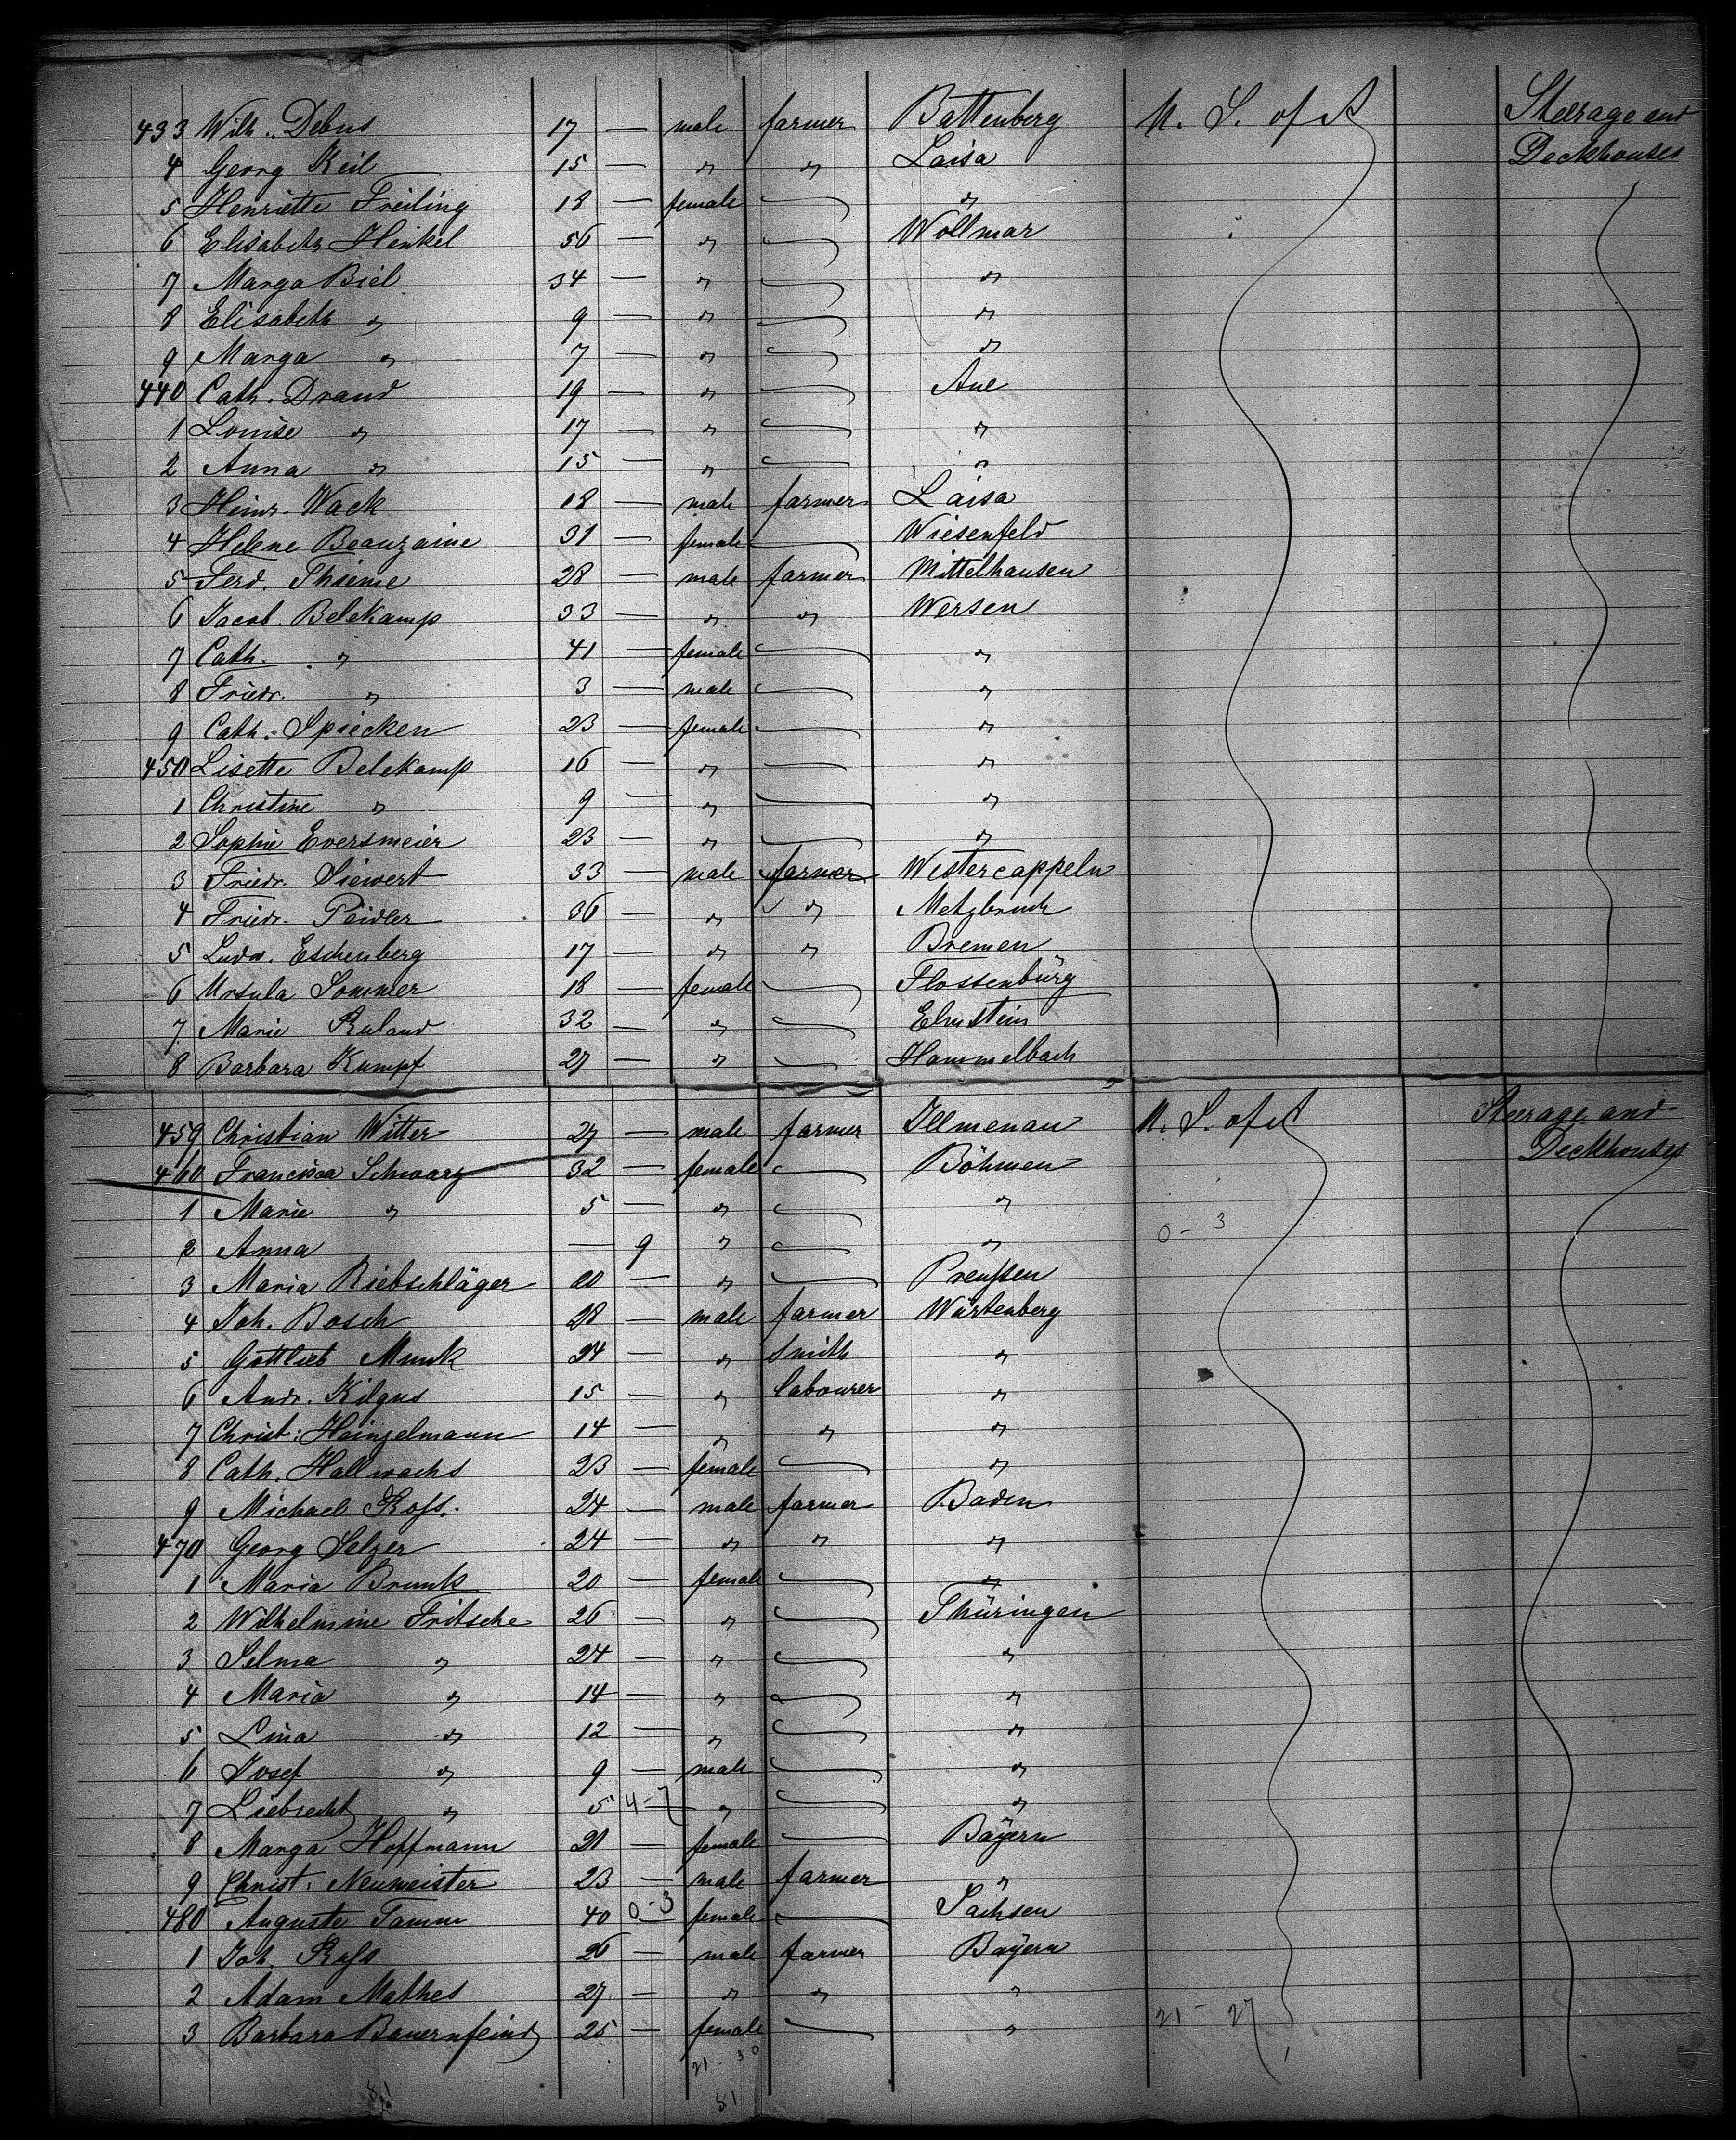 433 Wilh. Debus 17 — male farmer Battenberg U. S. of A Steerage and
4 Georg Keil 15 — " " Laisa Deckhouses
5 Henriette Freiling 18 — female — "
6 Elisabeth Hinkel 56 — " — Wollmar
7 Marga Biel 34 — " — "
8 Elisabeth " 9 — " — "
9 Marga " 7 — " — "
440 Cath. Drand 19 — " — Aue
1 Louise " 17 — " — "
2 Anna " 15 — " — "
3 Heinr. Wack 18 — male farmer Laisa
4 Helene Beauzaine 31 — female — Wiesenfeld
5 Ferd. Thieme 28 — male farmer Mittelhausen
6 Jacob Belekamp 33 — " " Wersen
7 Cath. " 41 — female — "
8 Friedr. " 3 — male — "
9 Cath. Spiecken 23 — female — "
450 Lisette Belekamp 16 — " — "
1 Christine " 9 — " — "
2 Sophie Eversmeier 23 — " — "
3 Friedr. Siewert 33 — male farmer Westercappeln
4 Friedr. Peidler 36 — " " Metzbruch
5 Ludw. Eschenberg 17 — " " Bremen
6 Ursula Sommer 18 — female — Flossenbürg
7 Marie Ruland 32 — " — Elmstein
8 Barbara Kumpf 27 — " — Hammelbach
459 Christian Witter 27 — male farmer Illmenau U. S. of A Steerage and
460 Francisca Schwarz 32 — female — Böhmen Deckhouses
1 Marie " 5 — " — "
2 Anna — 9 " — " 0 - 3
3 Maria Riebschläger 20 — " — Preußen
4 Joh. Bosch 28 — male farmer Würtenberg
5 Gottlieb Munk 24 — " Smith "
6 Andr. Kilgus 15 — " labourer "
7 Christ: Hainzelmann 14 — " " "
8 Cath. Hallwachs 23 — female — "
9 Michael Roß. 24 — male farmer Baden
470 Georg Selzer 24 — " " "
1 Maria Brunk 20 — female — "
2 Wilhelmine Fritsche 26 — " — Thüringen
3 Selma " 24 — " — "
4 Maria " 14 — " — "
5 Lina " 12 — " — "
6 Josef " 9 — male — "
7 Liebrecht " 5 4-7 — " — "
8 Marga Hoffmann 21 — female — Bayern
9 Christ. Neumeister 23 — male farmer "
480 Auguste Tamm 40 0-3 — female — Sachsen
1 Joh. Roß 26 — male farmer Bayern
2 Adam Mathes 27 — " " "
3 Barbara Bauernfeind 25 — female — " 21 - 27
21 - 30
51